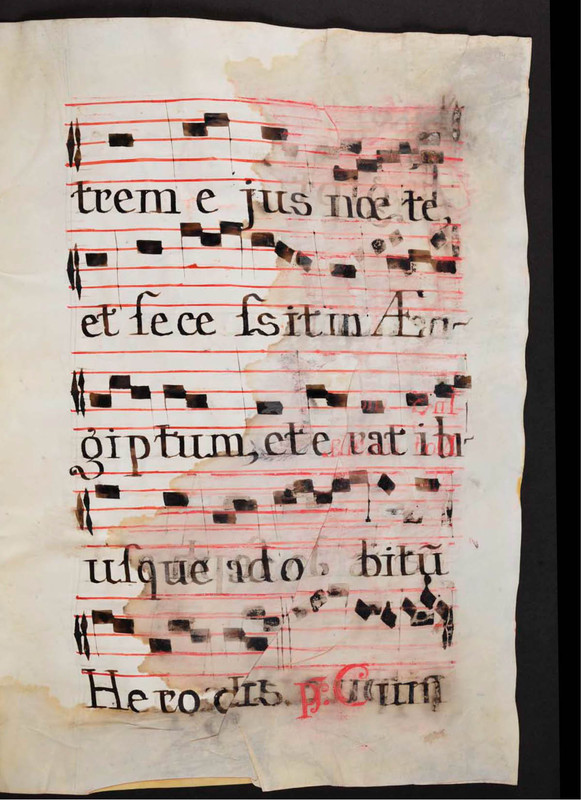 trem e jus nocte,
et ſeceſſit in Æa-
giptum, et e rat ibi
uſque ad o bitũ
Herodis. p. Cum